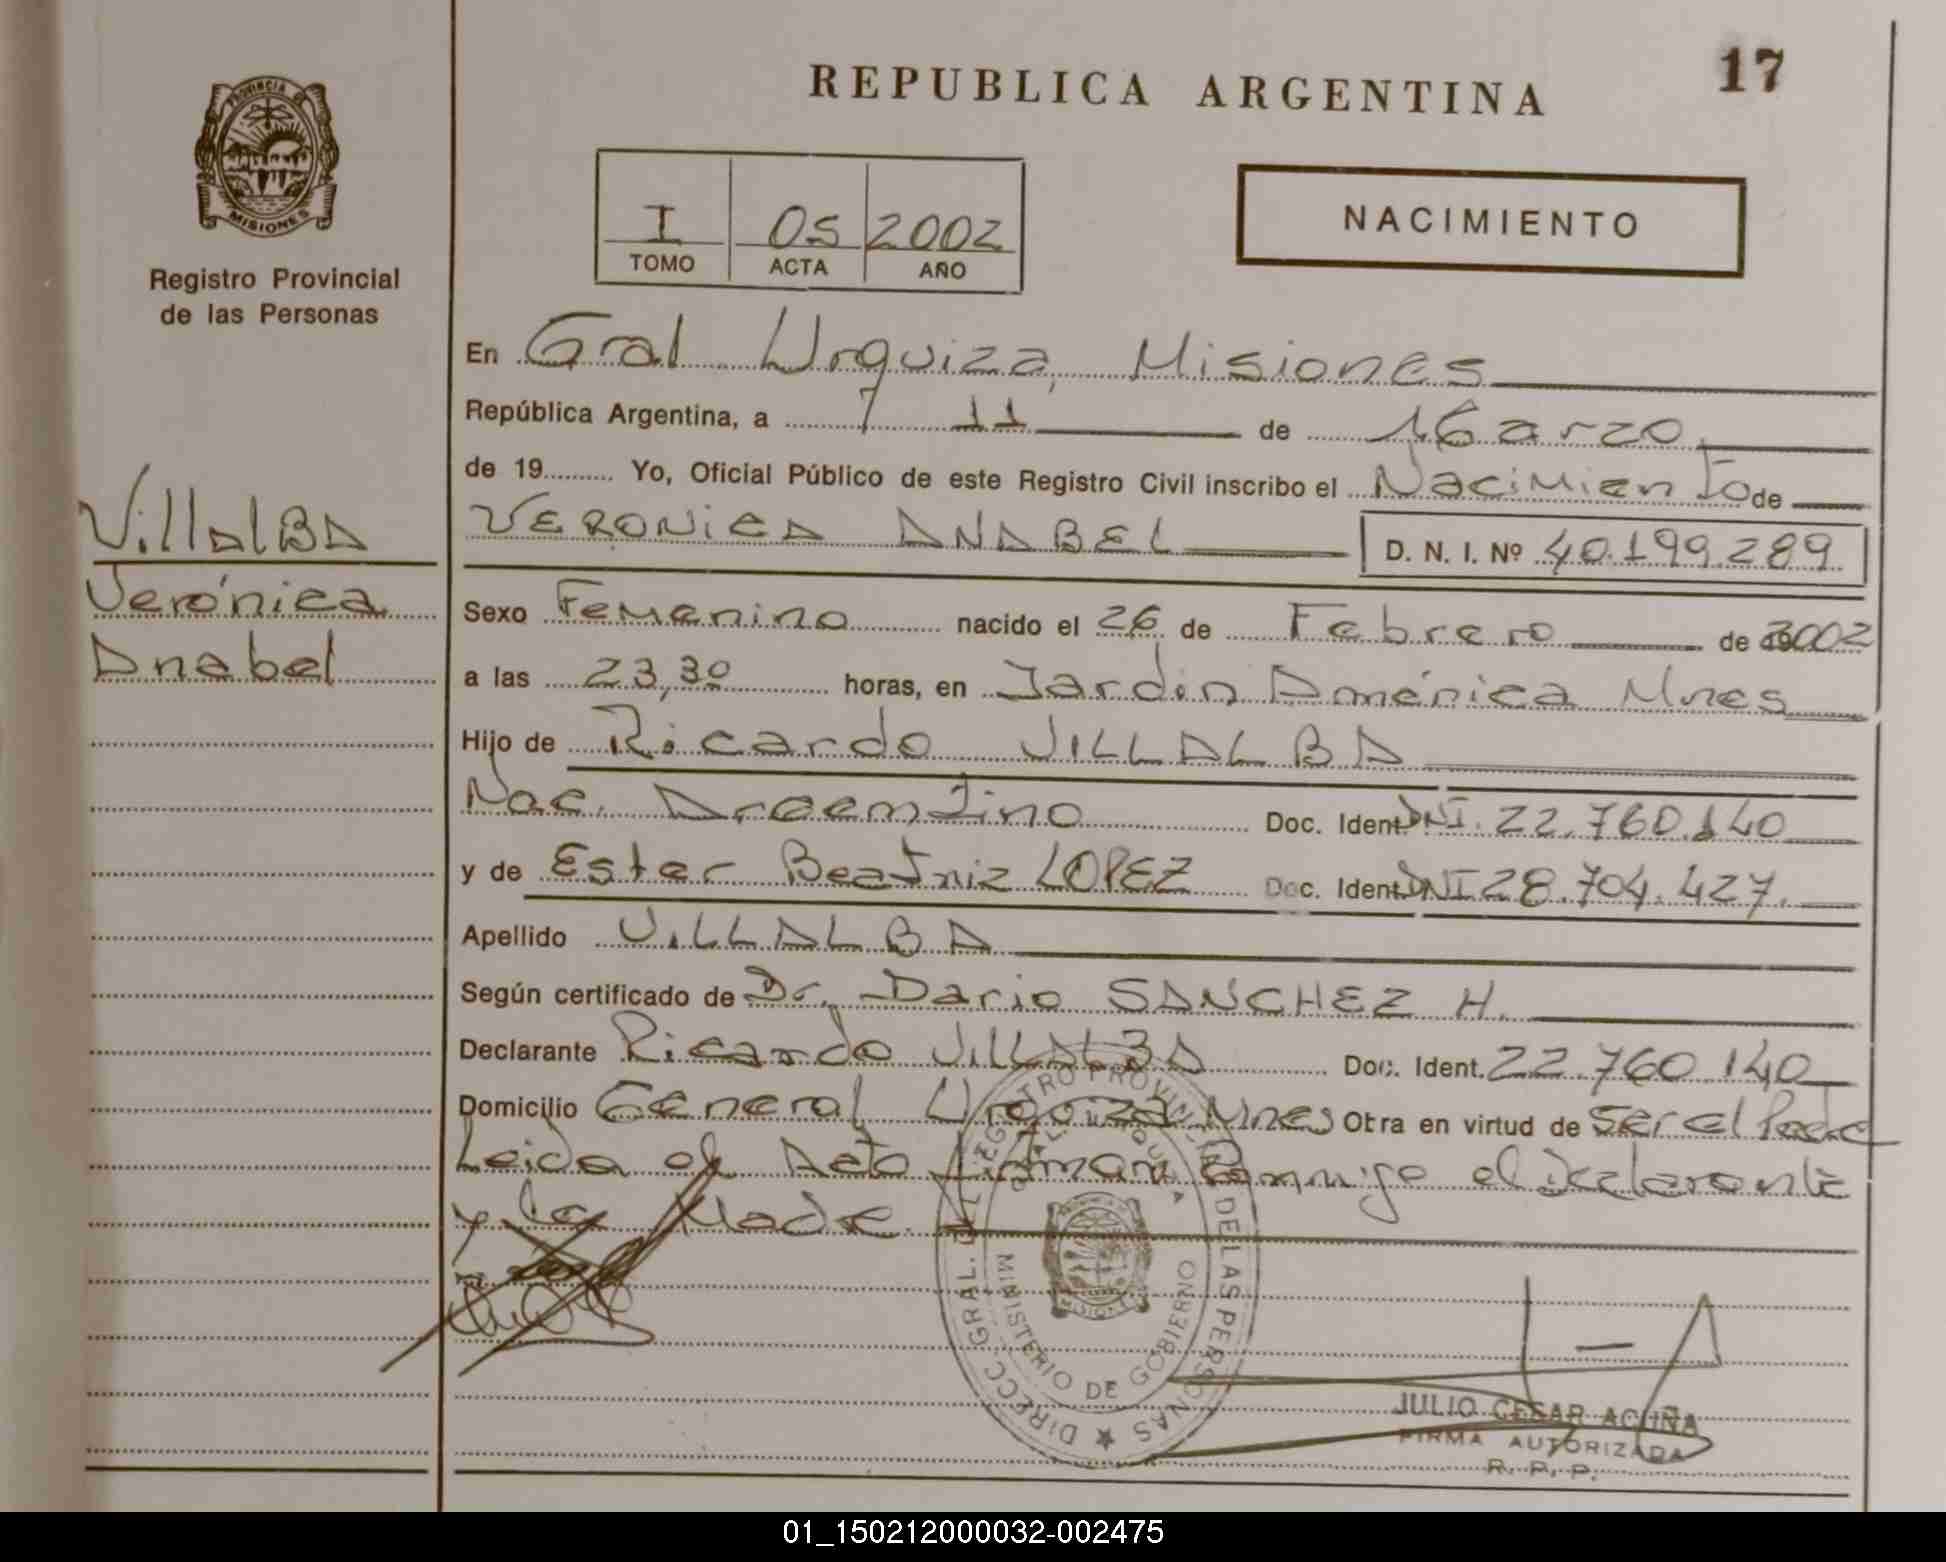 REPUBLICA ARGENTINA
17
PROVINCIA DE
MISIONES
Registro Provincial
de las Personas
I 05 2002
TOMO ACTA AÑO
NACIMIENTO
En Gral Urquiza, Misiones
República Argentina, a 11 de Marzo
de 19 Yo, Oficial Público de este Registro Civil inscribo el Nacimiento de
VERONICA ANABEL D. N. I. Nº 40.199.289
VillalBA
Verónica
Anabel
Sexo Femenino nacido el 26 de Febrero de 2002
a las 23,30 horas, en Jardin América Mnes
Hijo de Ricardo VILLALBA
Nac. Argentino Doc. Ident. DNI. 22.760.140
y de Ester Beatriz LOPEZ Doc. Ident. DNI 28.704.427.
Apellido VILLALBA
Según certificado de Dr. Dario SANCHEZ H.
Declarante Ricardo VILLALBA Doc. Ident. 22.760.140
Domicilio General Urquiza Mnes Otra en virtud de ser el Padre
Leida el Acta Firman conmigo el Declarante
y la Madre.
DIRECC. GRAL. DEL REGISTRO PROVINCIAL DE LAS PERSONAS
MINISTERIO DE GOBIERNO
JULIO CESAR ACUÑA
FIRMA AUTORIZADA
R. P. P.
01_150212000032-002475